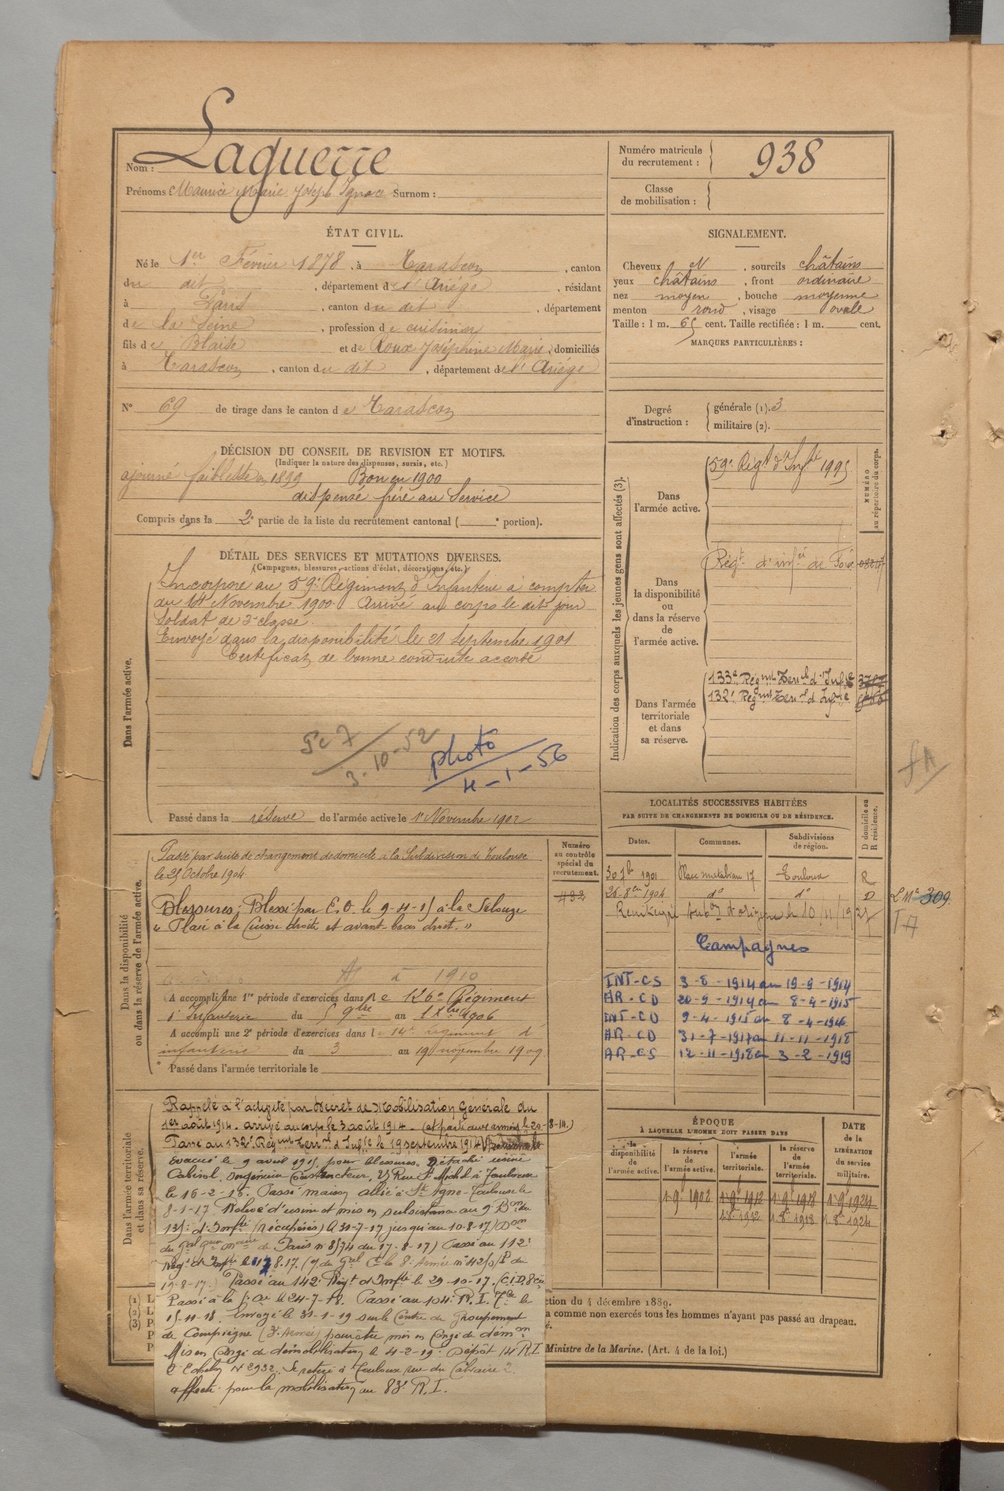 Nom : Laguerre
Prénoms Maurice Marie Joseph Ignace Surnom :
Numéro matricule
du recrutement : 938
Classe
de mobilisation :
ÉTAT CIVIL.
Né le 1er Février 1878, à Tarascon, canton
du dit, département de l'Ariège, résidant
à Paris, canton du dit, département
de la Seine, profession de cuisinier
fils de Blaise et de Roux Joséphine Marie, domiciliés
à Tarascon, canton du dit, département de l'Ariège
N° 69 de tirage dans le canton de Tarascon
SIGNALEMENT.
Cheveux N, sourcils châtains
yeux châtains, front ordinaire
nez moyen, bouche moyenne
menton rond, visage ovale
Taille : 1 m. 65 cent. Taille rectifiée : 1 m. cent.
MARQUES PARTICULIÈRES :
Degré
d'instruction :
générale (1). 3
militaire (2).
DÉCISION DU CONSEIL DE REVISION ET MOTIFS.
(Indiquer la nature des dispenses, sursis, etc.)
ajourné faiblesse 1899 Bon en 1900
dispensé frère au Service
Compris dans la 2e partie de la liste du recrutement cantonal ( e portion).
DÉTAIL DES SERVICES ET MUTATIONS DIVERSES.
(Campagnes, blessures, actions d'éclat, décorations, etc.)
Dans l'armée active.
Incorporé au 59e Régiment d'Infanterie à compter
du Novembre 1900. Arrivé au corps le dit jour
soldat de 2e classe.
Envoyé dans la disponibilité le 21 Septembre 1901
Certificat de bonne conduite accordé
3-10-52
photo
4-1-56
Passé dans la réserve de l'armée active le 1er Novembre 1902
Indication des corps auxquels les jeunes gens sont affectés (3).
Dans
l'armée active.
59e Régt d'Infie 1995
NUMÉRO
au répertoire du corps.
Dans
la disponibilité
ou
dans la réserve
de
l'armée active.
Régt d'infie de Foix
Dans l'armée
territoriale
et dans
sa réserve.
133e Régmt Terral d'Infie
132e Régmt Terral d'Infie
Dans la disponibilité
ou dans la réserve de l'armée active.
Numéro
au contrôle
spécial du
recrutement.
Passé par suite de changement de domicile à la Subdivision de Toulouse
le 25 Octobre 1904
Blessures; Blessé par E.O. le 9-4-15 à la Selouze
" Plaie à la Cuisse droite et avant-bras droit. "
à 1910
A accompli une 1re période d'exercices dans le 126e Régiment
d'Infanterie du 5 9bre au 1 Xbre 1906
A accompli une 2e période d'exercices dans le 14e régiment d'
infanterie du 3 au 19 novembre 1909
Passé dans l'armée territoriale le
LOCALITÉS SUCCESSIVES HABITÉES
PAR SUITE DE CHANGEMENTS DE DOMICILE OU DE RÉSIDENCE.
Dates. Communes. Subdivisions
de région.
D domicile ou
R résidence.
30 7bre 1901 Rue matabiau 17 Toulouse R
26 8bre 1904 do do D
309
Campagnes
INT-CS 3-8-1914 au 19-9-1914
AR-CD 20-9-1914 au 8-4-1915
INT-CD 9-4-1915 au 8-4-1916
AR-CD 31-7-1917 au 11-11-1918
AR-CS 12-11-1918 au 3-2-1919
ÉPOQUE
À LAQUELLE L'HOMME DOIT PASSER DANS
DATE
de la
LIBÉRATION
du service
militaire.
la
disponibilité
de
l'armée active.
la réserve
de
l'armée active.
l'armée
territoriale.
la réserve
de
l'armée
territoriale.
1er 9bre 1902 1er 9bre 1912 1er 9bre 1918 1er 9bre 1924
Dans l'armée territoriale
et dans sa réserve.
Rappelé à l'activité par Décret de Mobilisation Générale du
1er août 1914. arrivé au corps le 3 août 1914.
Passé au 132e Régmt Terral d'Infie le 19 septembre 1914
Évacué le 9 avril 1915 pour blessures. Détaché usine
Cabirol, Ingénieur Constructeur, 25 Rue St Michel à Toulouse
le 16-2-15. Passé maison alliée à St Agne-Toulouse le
8-1-17. Relevé d'usine et mis en subsistance au 9e Bon du
135e d'Infie (Récupérés) le 31-7-17 jusqu'au 10-8-17
de Paris n° 8574 du 17-8-17) Passé au 112e
Régt d'Infie le 17.8.17.
19-8-17.) Passé au 142e Régt d'Infie le 29-10-17.
Passé à la le 24-7-18. Passé au 104e R.I. le
15-11-18. Envoyé le 31-1-19 sur le Centre de Groupement
de Compiègne (3e Armée) pour être mis en Congé de démon
Mis en Congé de démobilisation le 4-2-19. Dépôt 14 R.I.
2e Echelon N° 2932. Se retire à Toulouse rue du Calvaire 2.
affecté pour la mobilisation au 83e R.I.
ction du 4 décembre 1889.
a comme non exercés tous les hommes n'ayant pas passé au drapeau.
Ministre de la Marine. (Art. 4 de la loi.)